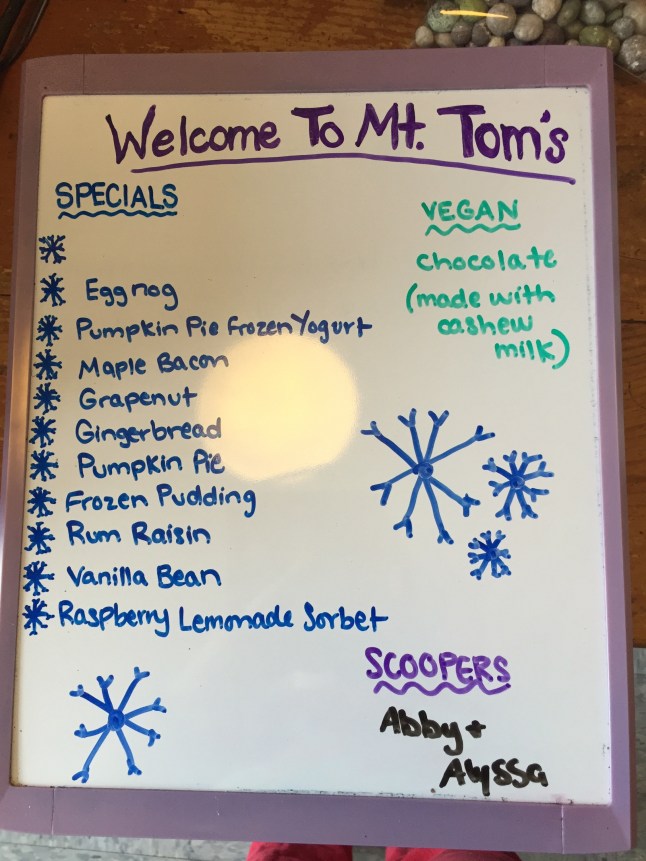 Welcome To Mt. Tom's
SPECIALS
Eggnog
Pumpkin Pie Frozen Yogurt
Maple Bacon
Grapenut
Gingerbread
Pumpkin Pie
Frozen Pudding
Rum Raisin
Vanilla Bean
Raspberry Lemonade Sorbet
VEGAN
chocolate
(made with
cashew
milk)
SCOOPERS
Abby +
Alyssa